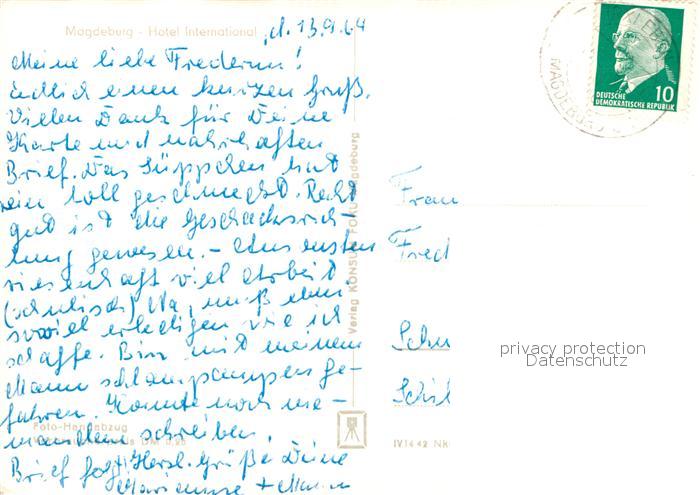 Magdeburg - Hotel International
d. 13.9.64
Meine liebe Frederun!
endlich einen kurzen Gruß.
Vielen Dank für Deine
Karte mit nahrhaften
Brief. Das Süppchen hat
toll geschmeckt. Recht
gut ist die Geschacksrich-
tung gewesen. -
riesenhaft viel Arbeit
(schulisch) Na, muß eben
soviel erledigen wie ich
schaffe. Bin mit meinem
Mann ge-
fahren. Konnte noch nie-
mandem schreiben.
Brief folgt! Herzl. Grüße Deine
Marianne + Mann
Foto-Handabzug
DM 0,25
Verlag KONSUM FOKO Magdeburg
IV 14 42
MAGDEBURG
10
DEUTSCHE
DEMOKRATISCHE REPUBLIK
Frau
Fred
Schu
Schil
privacy protection
Datenschutz